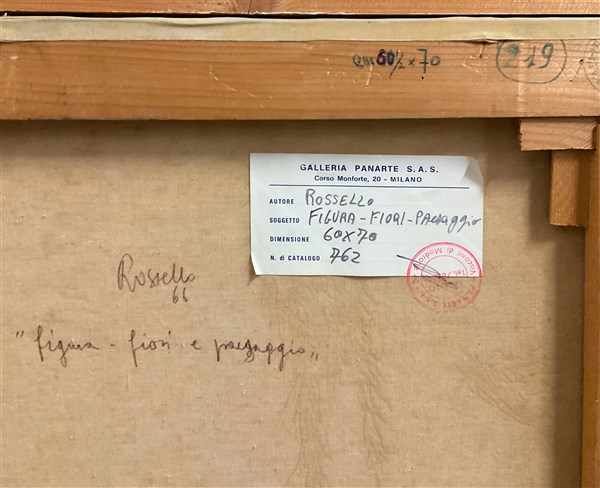 cm 60/2 x 70
219
GALLERIA PANARTE S.A.S.
Corso Monforte, 20 - MILANO
AUTORE ROSSELLO
SOGGETTO FIGURA - FIORI - PAESAGGIO
DIMENSIONE 60X70
N. di CATALOGO 762
Visconti di Modro
Rossello
66
"figura - fiori e paesaggio"